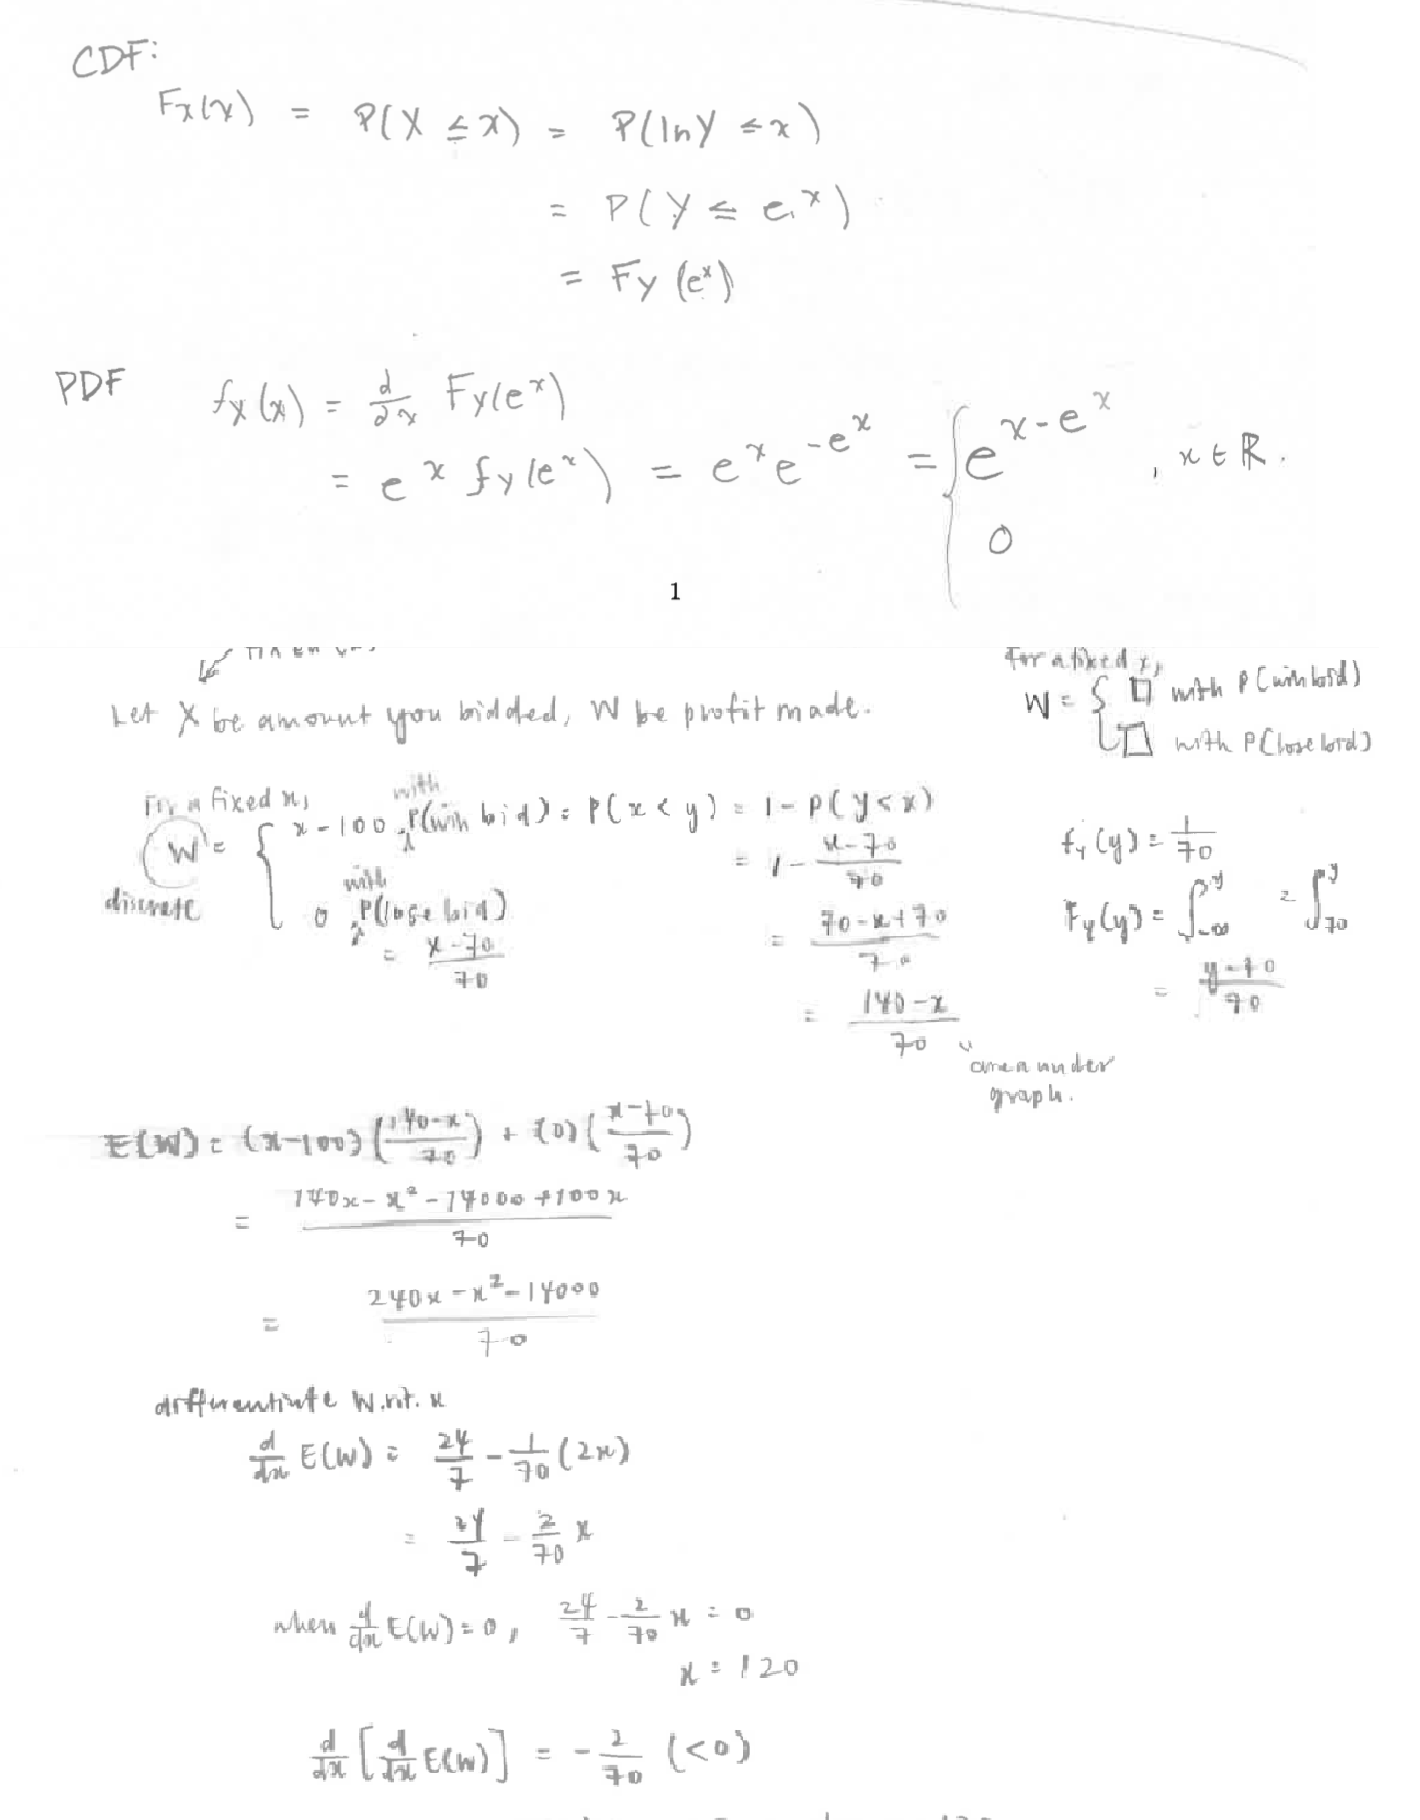 CDF:
Fx(x) = P(X ≤ x) = P(ln Y ≤ x)
= P(Y ≤ e^x)
= Fy (e^x)
PDF fx(x) = d/dx Fy(e^x)
= e^x fy(e^x) = e^x e^{-e^x} = { e^{x-e^x} , x ∈ ℝ.
0
1
For a fixed x,
Let X be amount you bidded, W be profit made.
W = { □ with P(win bid)
□ with P(lose bid)
For a fixed x,
W = { x-100 with P(win bid) = P(x < y) = 1 - P(Y < x)
= 1 - (x-70)/70
discrete
0 with P(lose bid)
= (x-70)/70
= (70-x+70)/70
= (140-x)/70
area under
graph.
fy(y) = 1/70
Fy(y) = ∫_{-∞}^{y} = ∫_{70}^{y}
= (y-70)/70
E(W) = (x-100)((140-x)/70) + (0)((x-70)/70)
= (140x - x² - 14000 + 100x)/70
= (240x - x² - 14000)/70
differentiate w.r.t. x
d/dx E(W) = 24/7 - 1/70 (2x)
= 24/7 - 2/70 x
when d/dx E(W) = 0, 24/7 - 2/70 x = 0
x = 120
d/dx [d/dx E(W)] = - 2/70 (<0)